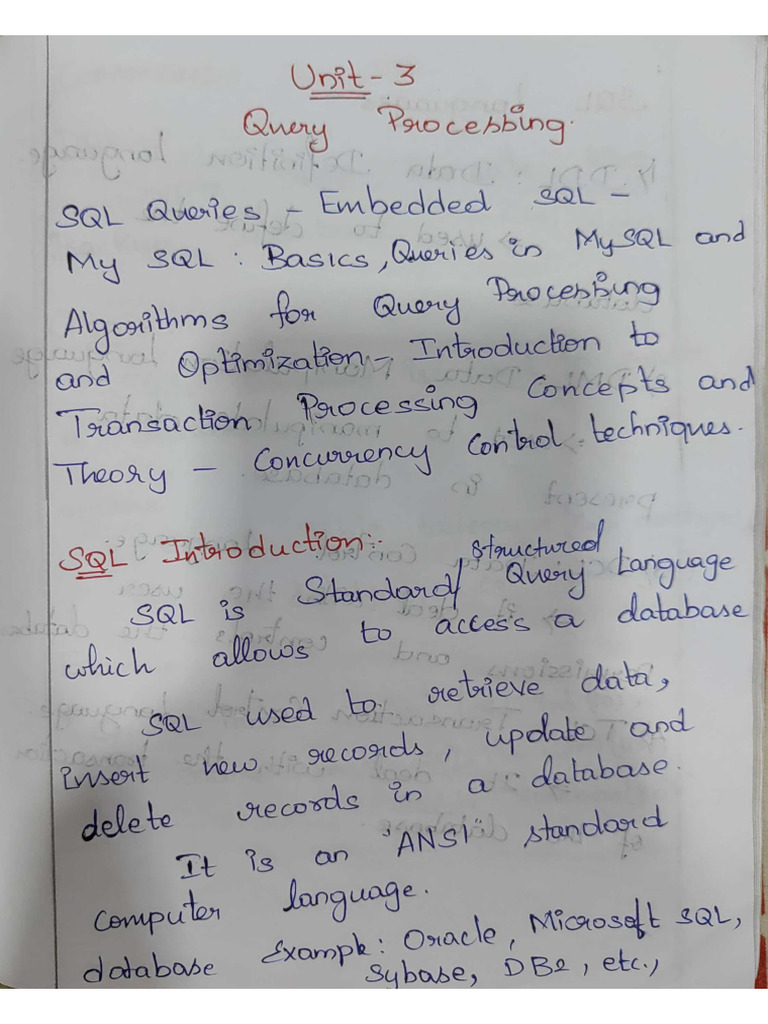 Unit - 3
Query Processing.
SQL Queries - Embedded SQL -
My SQL : Basics, Queries in MySQL and
Algorithms for Query Processing
and Optimization - Introduction to
Transaction Processing Concepts and
Theory - Concurrency Control techniques.
SQL Introduction:-
SQL is Standard / Structured Query Language
which allows to access a database
SQL used to retrieve data,
insert new records, update and
delete records in a database.
It is an "ANSI" standard
computer language.
database Example: Oracle, Microsoft SQL,
Sybase, DB2, etc.,